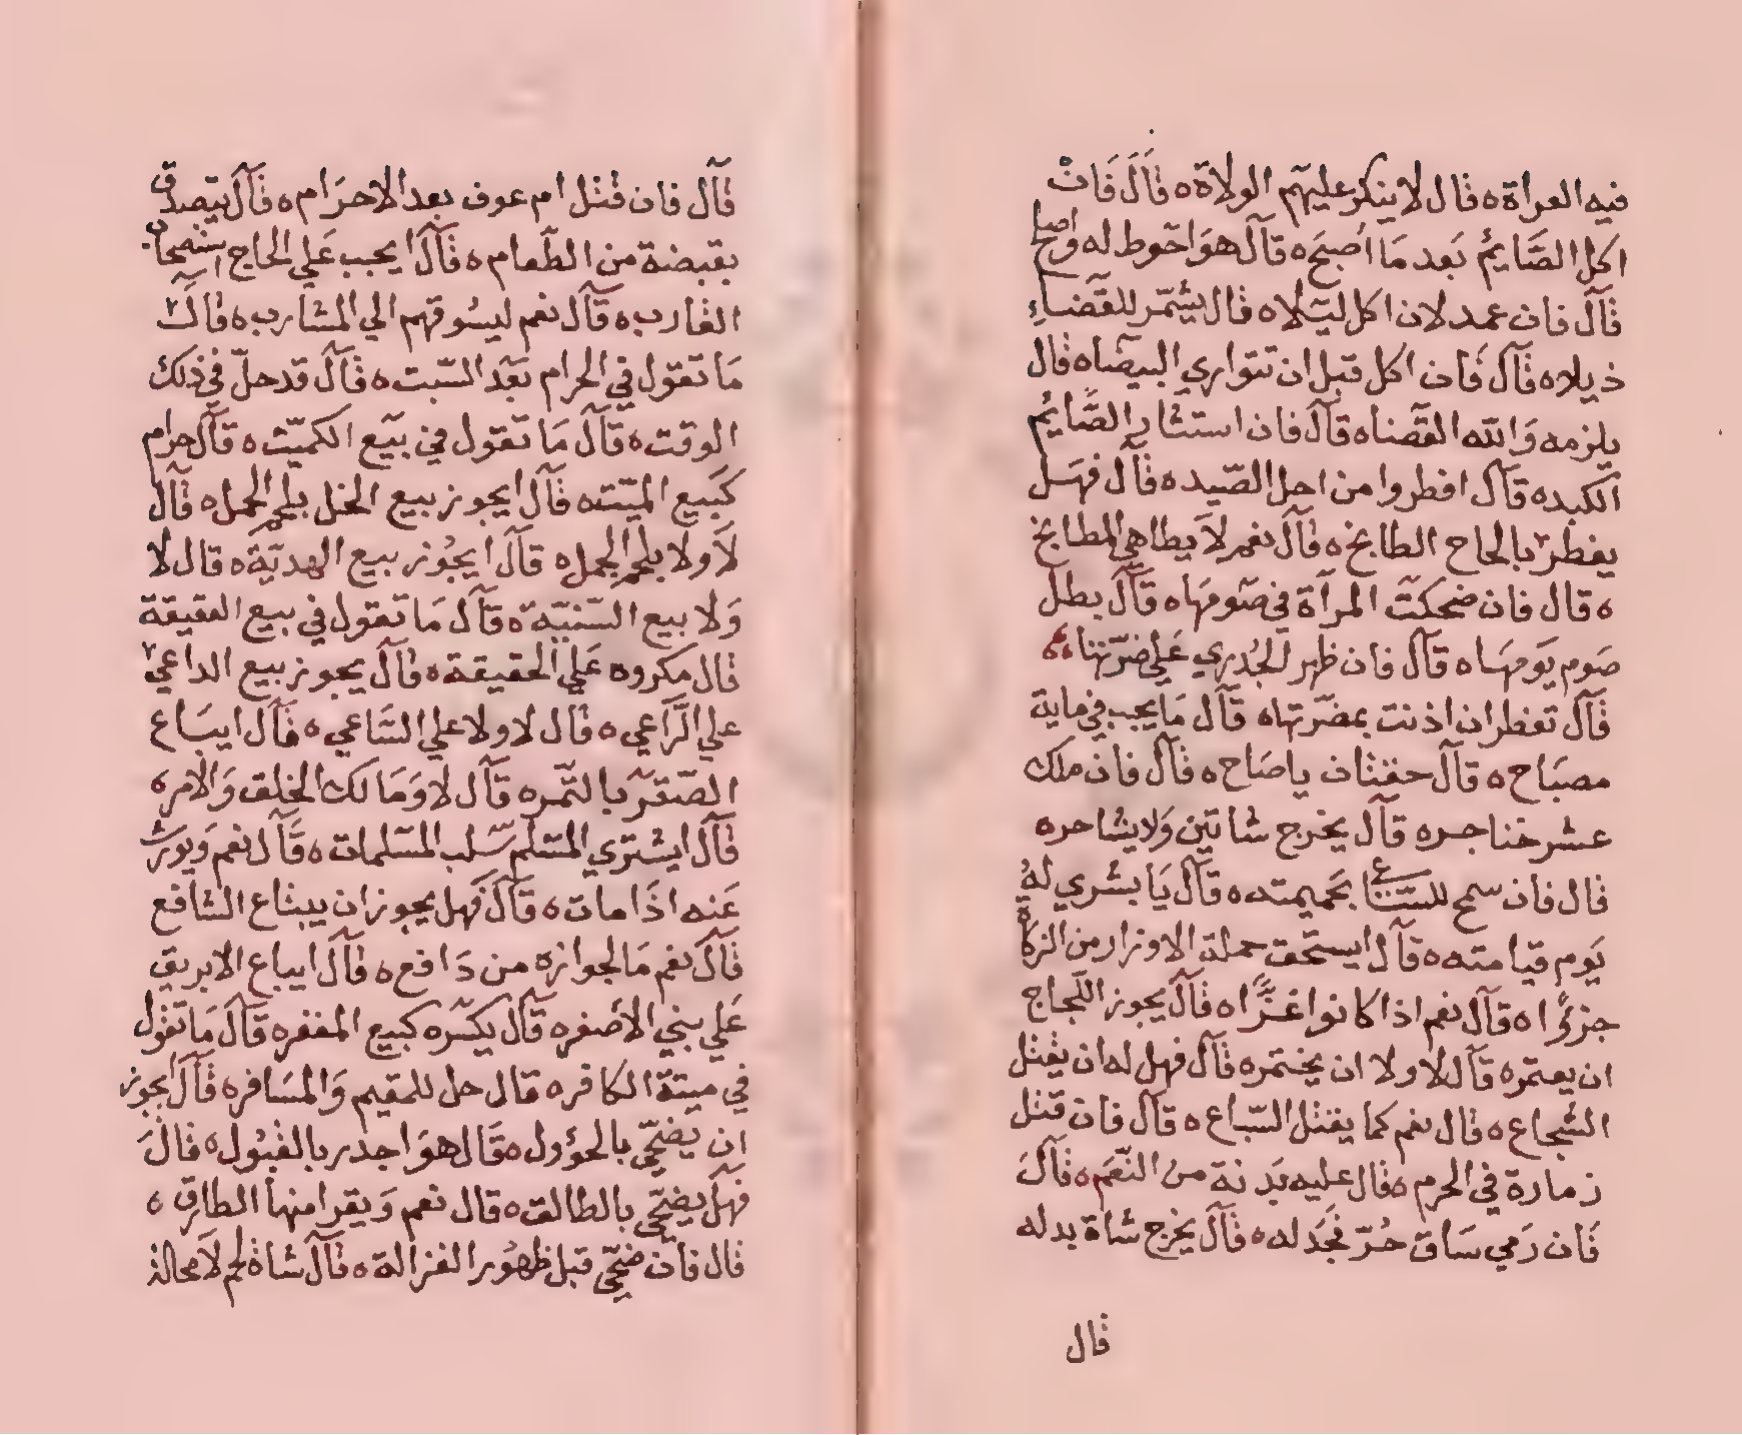 فيه العراة ه قال لا ينكر عليهم الولاة ه قَالَ فَانْ
اكل الصَّايمُ بَعد مَا اَصْبَحَ ه قآل هوَ احَوط له واصلح
قآل فان عمد لان اكل ليَلا ه قال يشمّر للقَضاءِ
ذيلا ه قآل فَان اكل قبل ان تتواري البيضَا ه قال
يلزمه وَالله القَضا ه قآل فان استشار الصَّايمُ
الكيد ه قآل افطر وا من احل الصّيد ه قآل فهَل
يفطر بالحاح الطابخ ه قآل نعم لا يطاهي المطابخ
ه قال فان ضحكَت المرآة في صَومهَا ه قآل بطل
صَوم يَومهَا ه قآل فان ظهر الجُدري عَلي ضرّتها ه
قآل تفطر ان اذنت بمضَرّتها ه قآل مَا يجب في ماية
مصبَاح ه قآل حقتان ياصَاح ه قآل فان ملك
عشر خناجر ه قآل يخرج شاتين وَلا يشاجر ه
قال فان سمح للسَاعي بحَميمته ه قآل يَا بشري لهُ
يَوم قيامته ه قآل ايستحق حملة الاوزار من الزكاة
جزءًا ه قآل نعم اذا كانوا غزًّا ه قآل يجوز للحاج
ان يعتمر ه قآل لا ولا ان يختمر ه قآل فهل له ان يقتل
الشجاع ه قال نعم كما يقتل السّباع ه قآل فان قتل
زمارة في الحرم ه قال عليه بَدنة من النّعَم ه قآلَ
فَان رَمي سَاق حُرّ فجَدله ه قآل يخرج شاة بدله
قال
قآل فان قتل ام عوف بعد الاحرَام ه قآل يتصدق
بقبضة من الطّعام ه قآل ايجب عَلي الحاج استصحاب
القارب ه قآل نعم ليسُوقهم الي المشارب ه قال
مَا تقول في الحرام بَعَد السّبت ه قآل قد حلّ في ذلك
الوقت ه قآل مَا تقول في بَيع الكميَت ه قآل حرام
كبَيع الميّت ه قآل ايجوز بيع الخل بلحم الجمل ه قآل
لَا ولا بلحم الحمل ه قآل ايجُوز بيع الهديّة ه قال لا
وَلا بيع السّبيّة ه قآل مَا تقول في بيع العقيقة
قال مكروه عَلي الحقيقة ه قآل يجوز بيع الداعي
علي الرَّاعي ه قال لا ولا علي السَّاعي ه قآل ايبَاع
الصّقَر بالتّمر ه قآل لا وَمَالك الخلق وَالامر ه
قآل ايشتري المسَلم سَلب المسَلمات ه قآل نعم وَيورث
عَنه اذَا مات ه قآل فهل يجوز ان يبتاع الشافع
قآل نعم مَا لجوازه من دَافع ه قآل ايباع الابريق
عَلي بني الاصفر ه قآل يكَره كبيع المغفر ه قآل مَا تقول
في ميتة الكافر ه قال حل للمقيم وَالمسَافر ه قآل ايجوز
ان يضَحّي بالحوُول ه قَال هوَ اجدر بالقبُول ه قالَ
فهَل يضَحّي بالطالق ه قال نعم وَيقرا منها الطارق ه
قال فان ضحّي قبل ظهُور الغزالة ه قآل شاة لحم لَا محالة